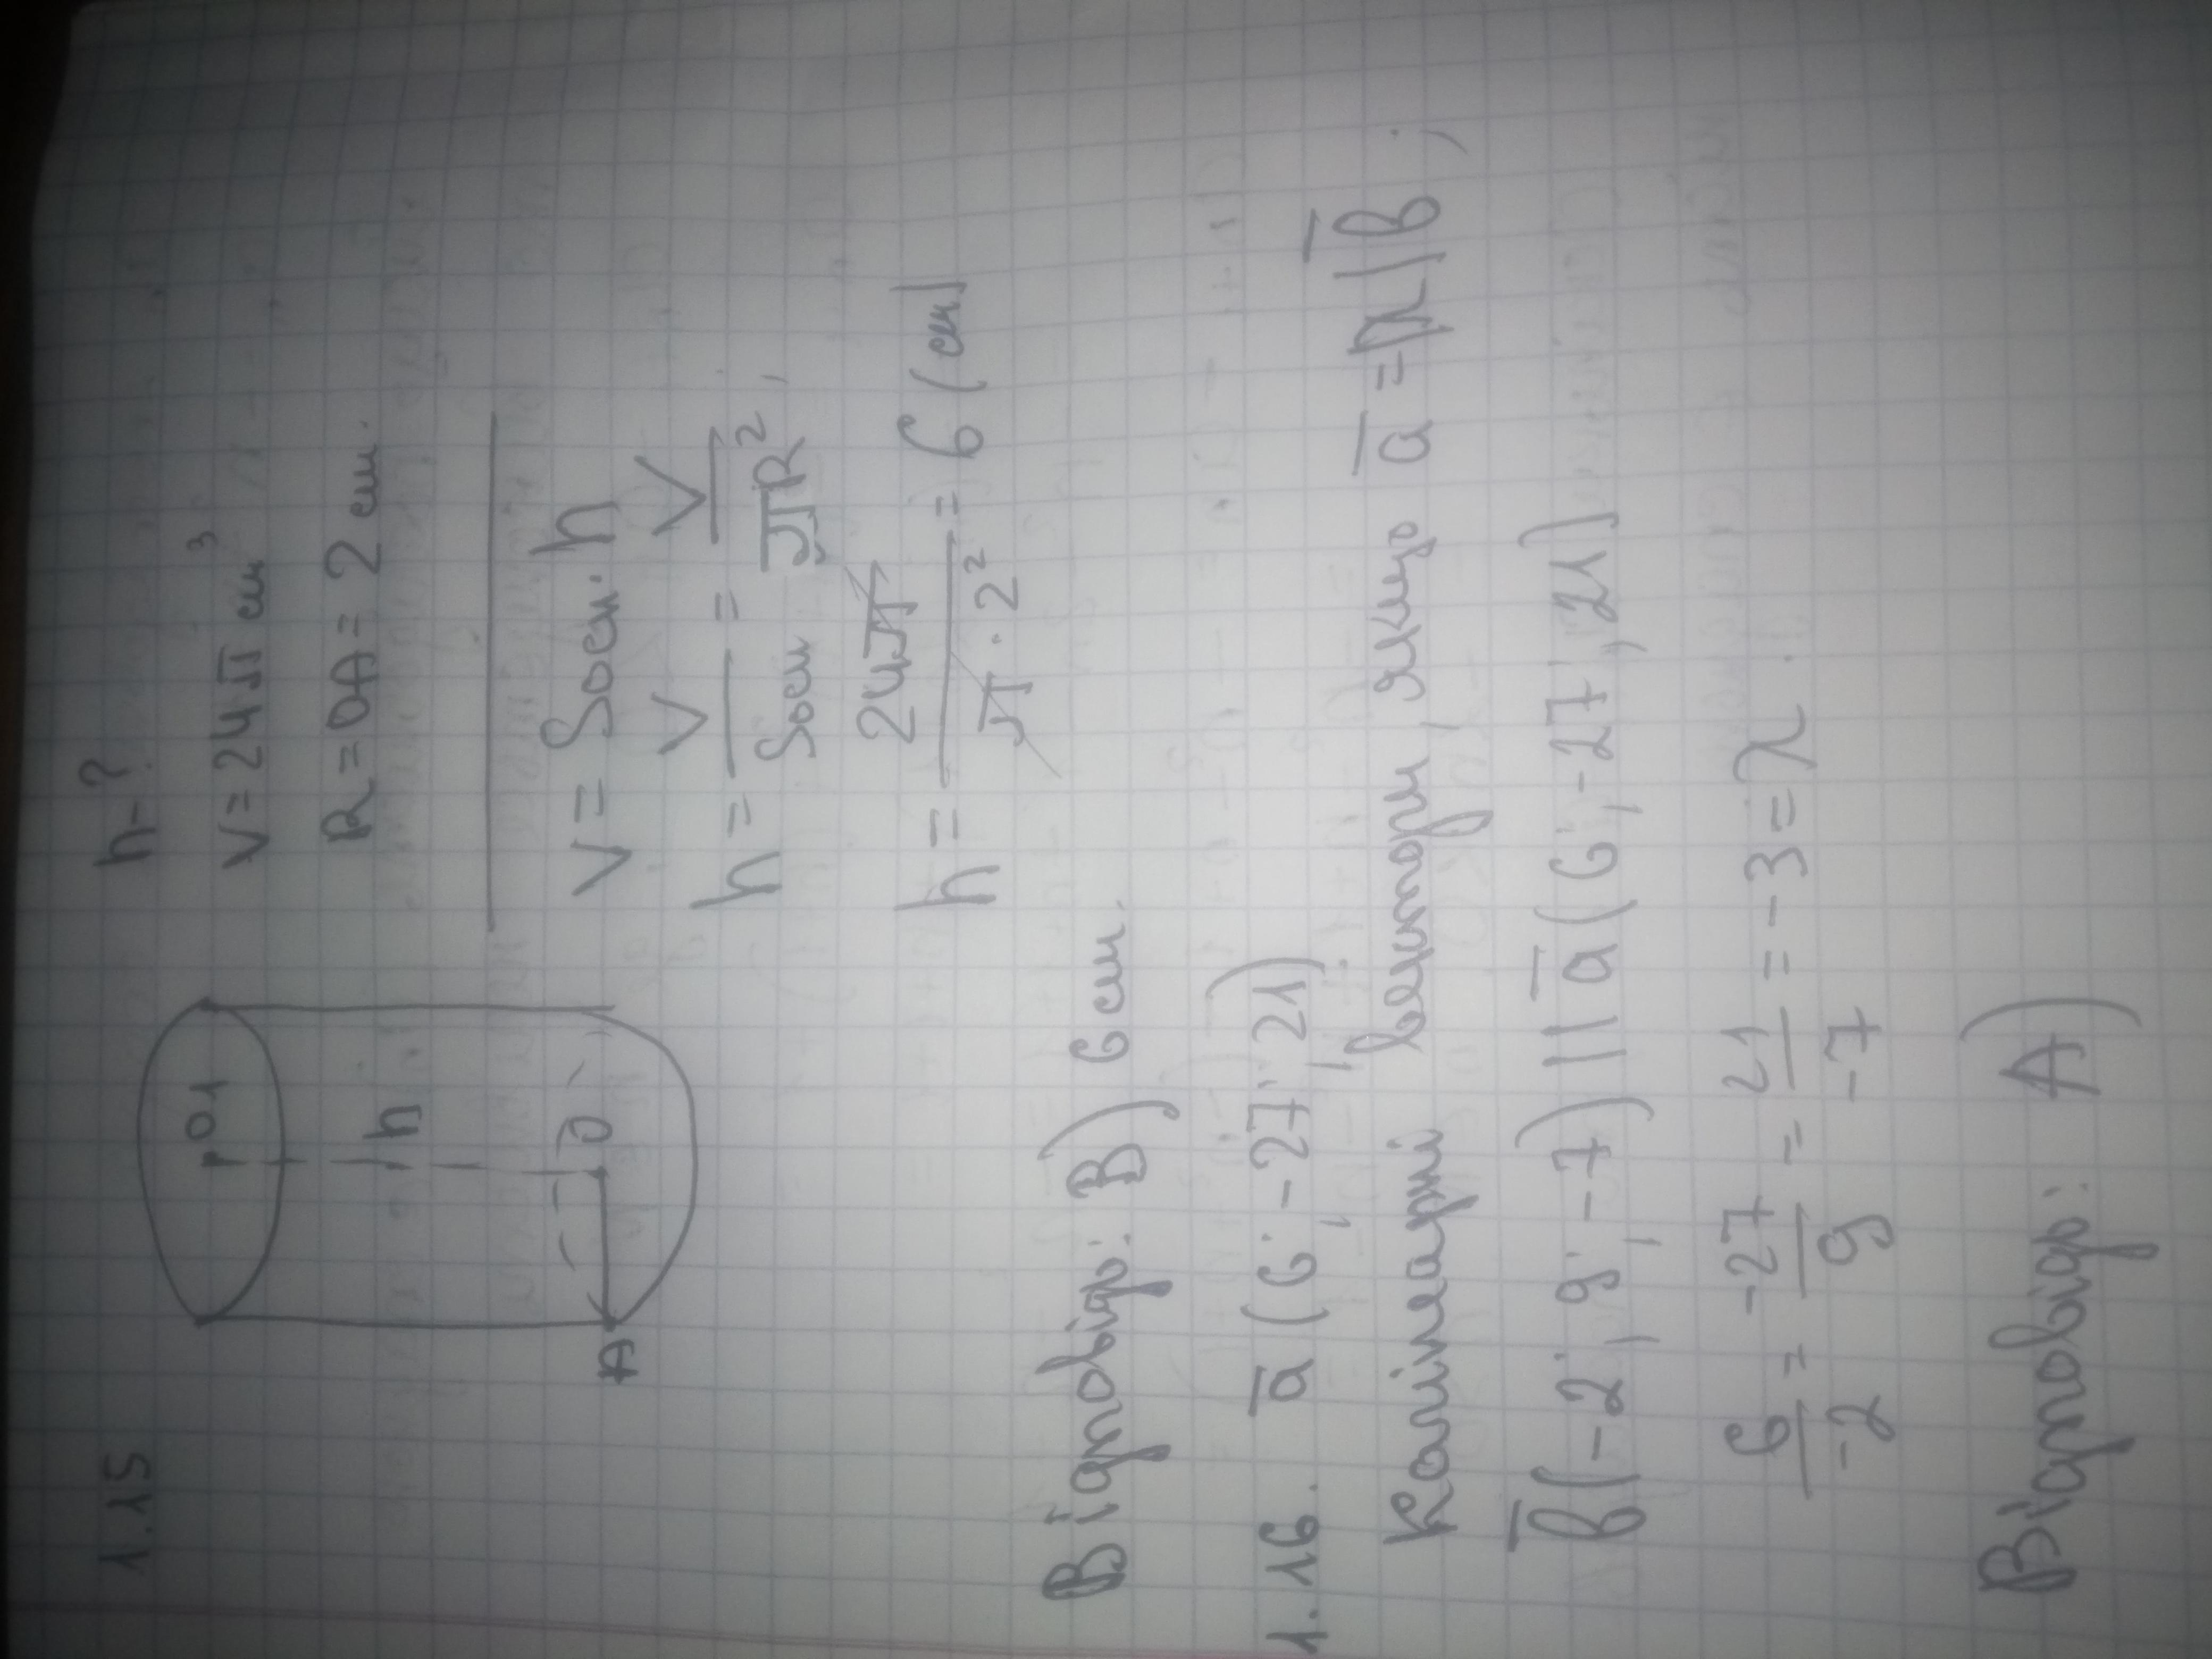 1.15
h-?
V=24π см³
R=OA=2 см.
O1
h
O
A
V=Sосн.h
h=V/Sосн=V/πR²;
h=24π/π·2²=6(см)
Відповідь: В) 6 см.
1.16. a̅(6;-27;21)
Колінеарні вектори, якщо a̅=λ|b̅;
b̅(-2;9;-7)||a̅(6;-27;21)
6/-2=-27/9=21/-7=-3=λ.
Відповідь: А)